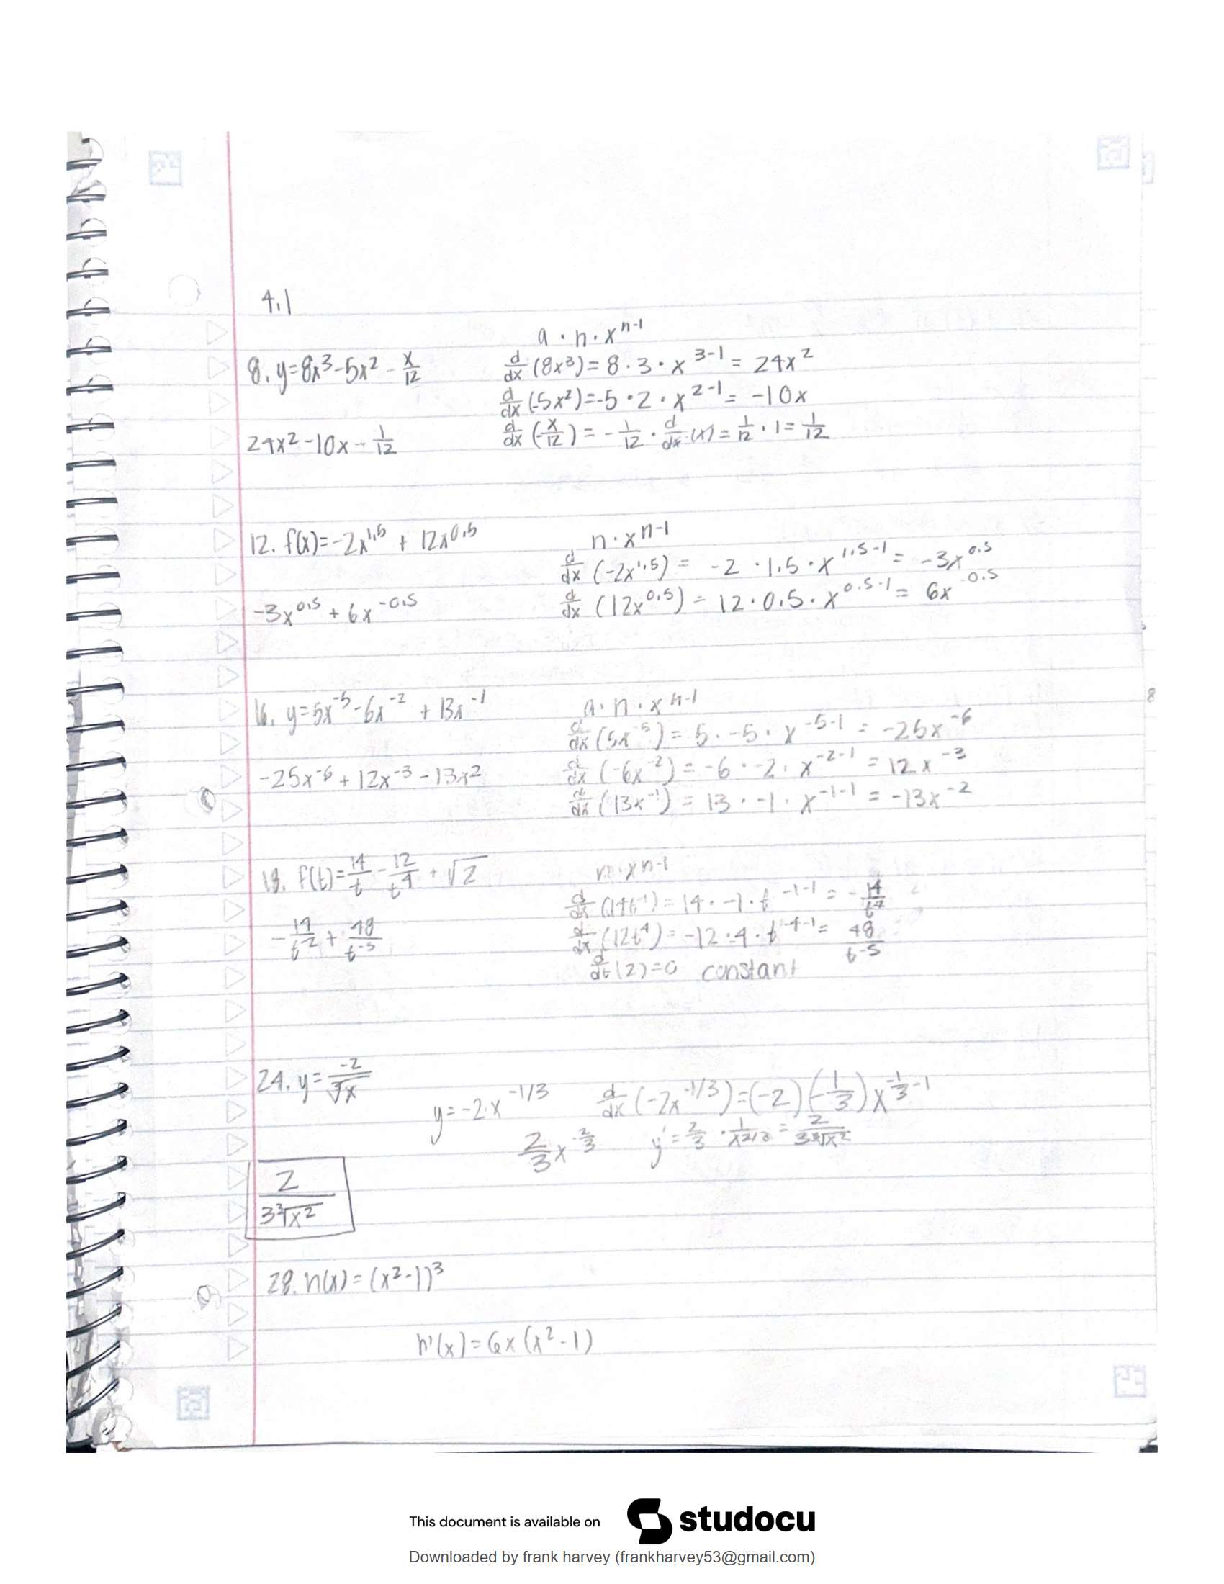 4.1
a · n · x^n-1
8. y=8x^3-5x^2 - x/12
d/dx (8x^3) = 8 · 3 · x^3-1 = 24x^2
d/dx (-5x^2) = -5 · 2 · x^2-1 = -10x
24x^2-10x - 1/12
d/dx (-x/12) = - 1/12 · d/dx (x) = 1/12 · 1 = 1/12
12. f(x)=-2x^1.5 + 12x^0.5
n · x^n-1
d/dx (-2x^1.5) = -2 · 1.5 · x^1.5-1 = -3x^0.5
-3x^0.5 + 6x^-0.5
d/dx (12x^0.5) = 12 · 0.5 · x^0.5-1 = 6x^-0.5
16. y=5x^-5-6x^-2 + 13x^-1
a · n · x^n-1
d/dx (5x^-5) = 5 · -5 · x^-5-1 = -25x^-6
-25x^-6 + 12x^-3 - 13x^2
d/dx (-6x^-2) = -6 · -2 · x^-2-1 = 12x^-3
d/dx (13x^-1) = 13 · -1 · x^-1-1 = -13x^-2
18. f(t)= 14/t - 12/t^4 + √2
n · x^n-1
d/dx (14t^-1) = 14 · -1 · t^-1-1 = - 14/t^2
- 14/t^2 + 48/t^-5
d/dx (12t^4) = -12 · 4 · t^-4-1 = 48/t^-5
d/dt (2) = 0 constant
24. y = -2/∛x
y = -2·x^-1/3
d/dx (-2x^-1/3) = (-2)(-1/3) x^-1/3-1
2/3 x^-2/3
y' = 2/3 · 1/x^2/3 = 2/3∛x^2
2/3∛x^2
28. h(x) = (x^2-1)^3
h'(x) = 6x(x^2-1)
This document is available on studocu
Downloaded by frank harvey (frankharvey53@gmail.com)